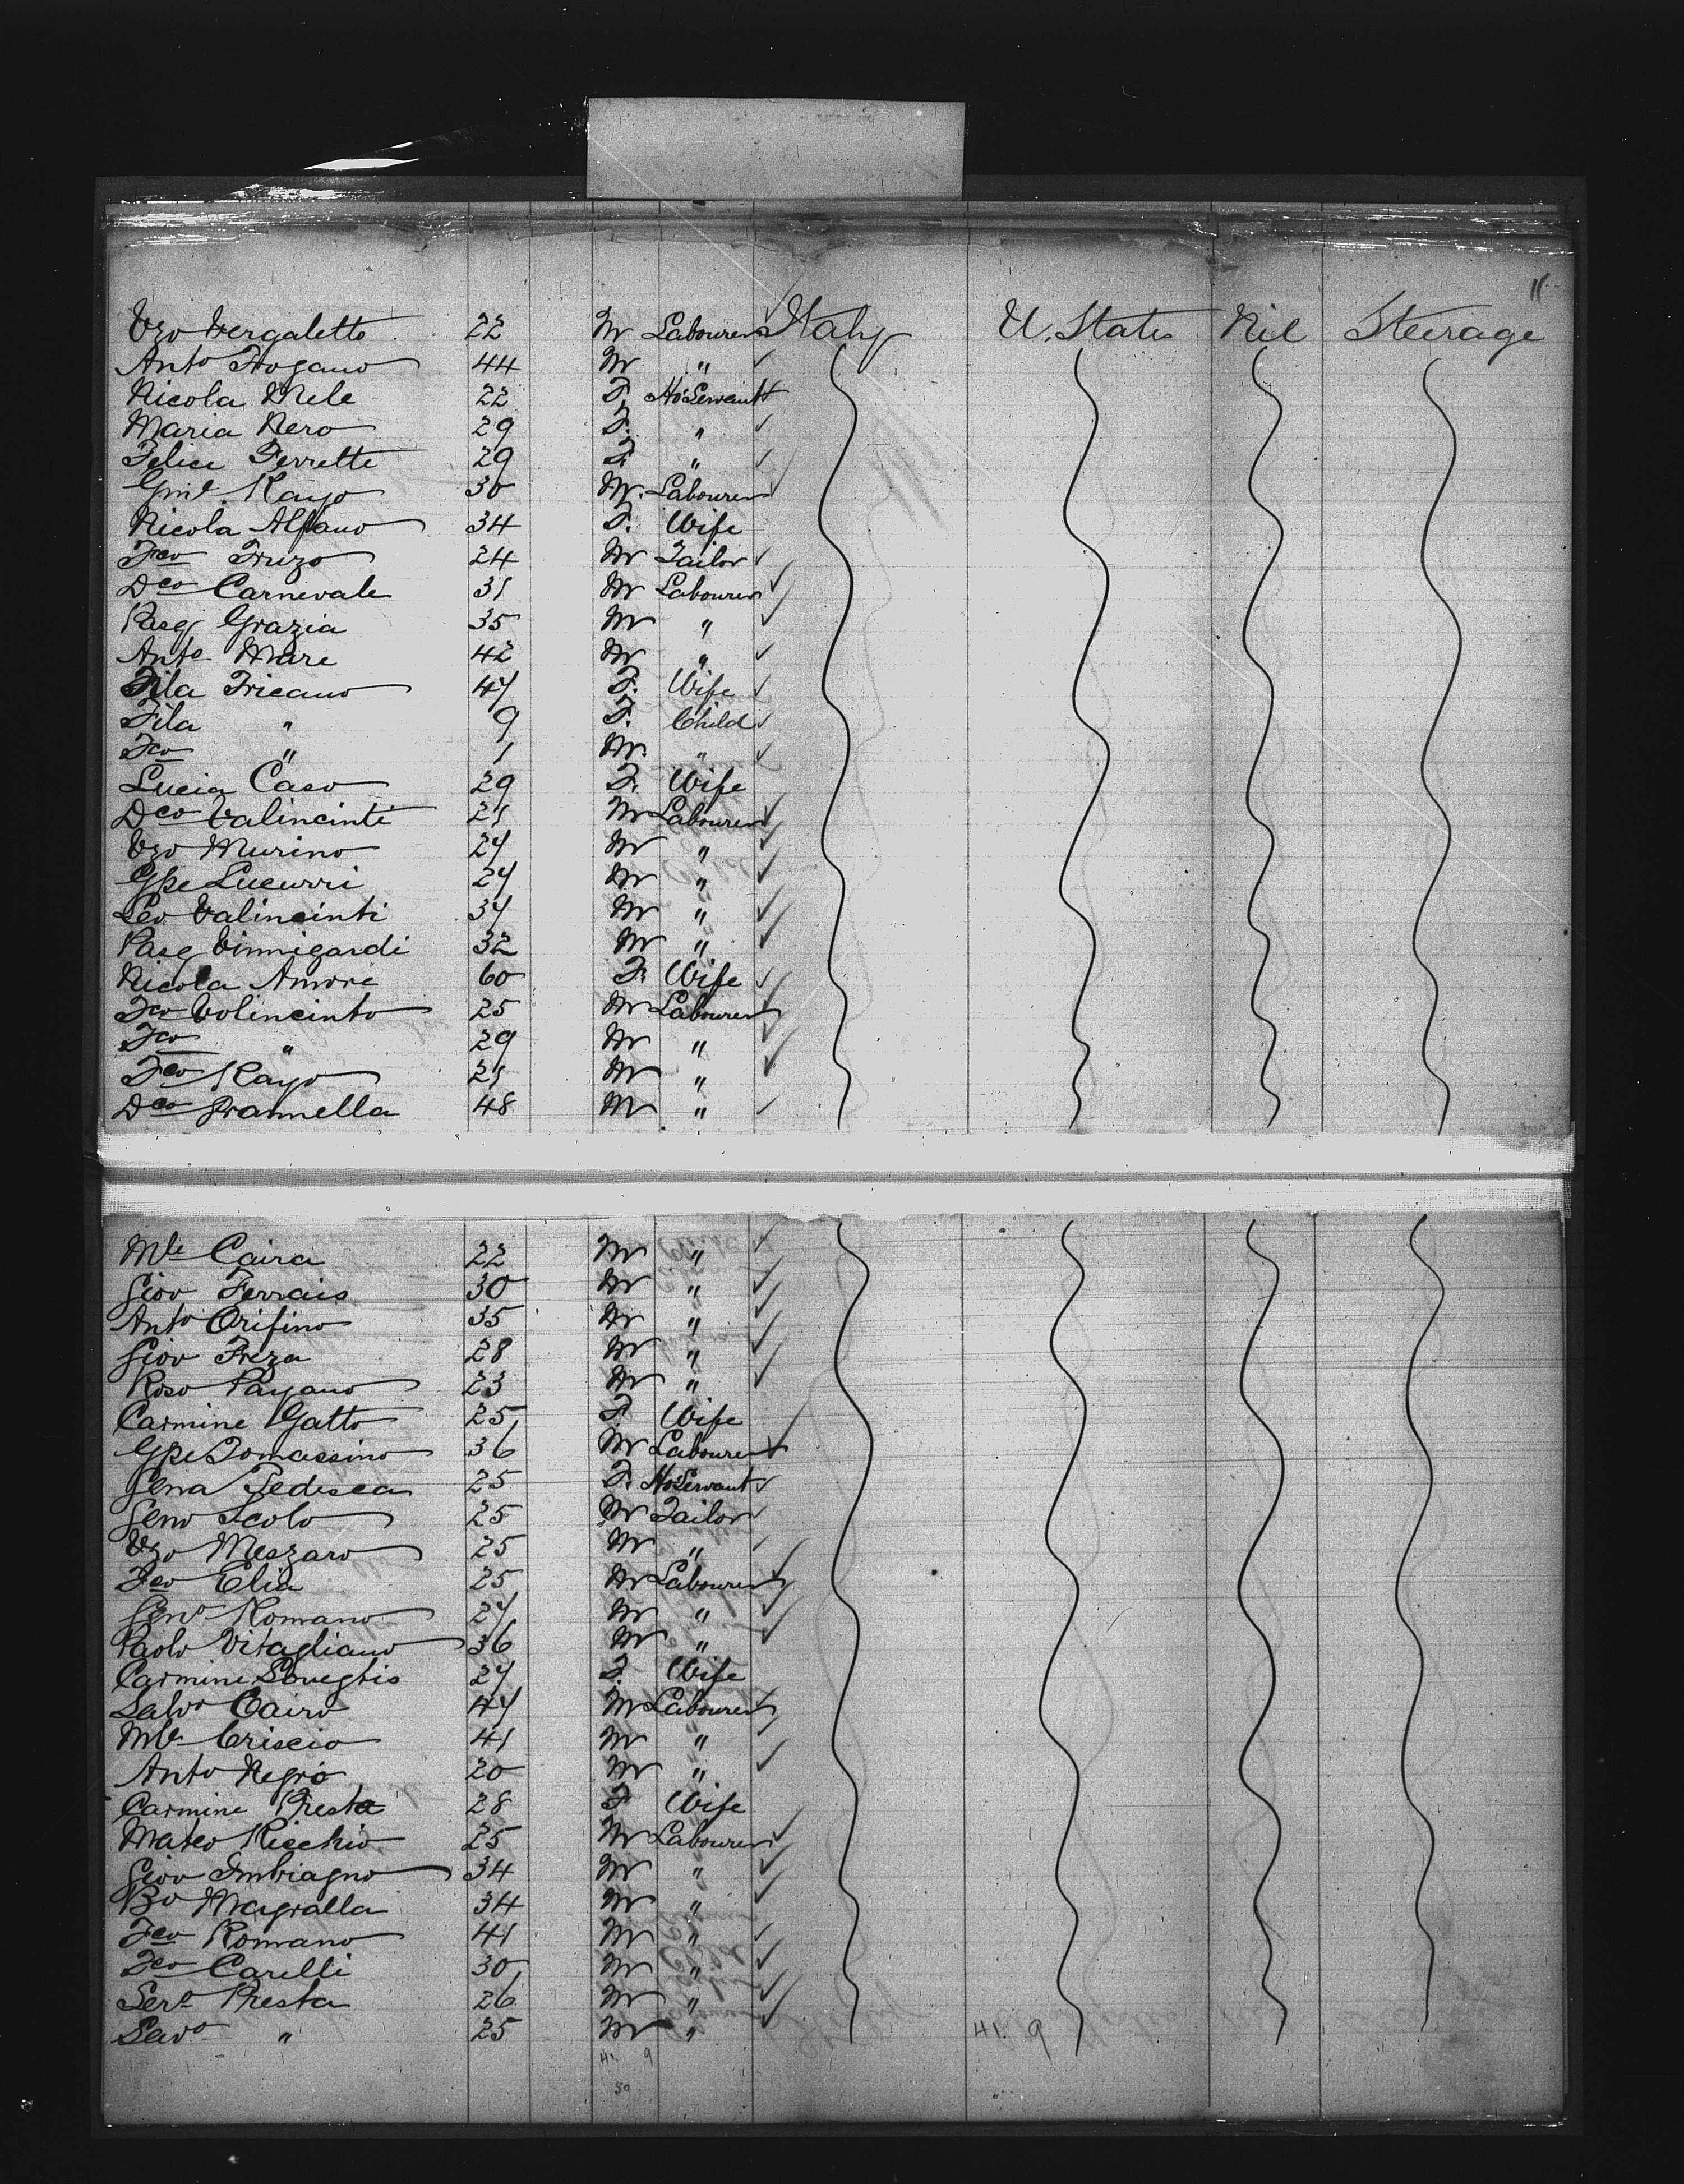 11
Vzo Vergaletto 22 M Labourer Italy U. States Nil Steerage
Anto Frogano 44 M "
Nicola Mele 22 F. Ho Servant
Maria Nero 29 F. "
Felice Ferrette 29 F "
Kayo 30 M. Labourer
Nicola Alfano 34 F. Wife
Fco Fruzo 24 M Tailor
Dco Carnevale 31 M Labourer
Pasq Grazia 35 M "
Anto Mare 42 M "
Fila Fricano 47 F. Wife
Fila " 9 F. Child
Fco " 1 M. "
Lucia Caso 29 F. Wife
Dco Valincinti 21 M Labourer
Vzo Murino 27 M "
Gpe Lucurri 27 M "
Leo Valincinti 37 M "
Pasq Vinnigardi 32 M "
Nicola Amore 60 F. Wife
Fco Volincinto 25 M Labourer
Fco " 29 M "
Fco Kayo 21 M "
Dco Prannella 48 M "
Mle Caira 22 M "
Giov Ferrais 30 M "
Anto Orifino 35 M "
Giov Freza 28 M "
Roso Pagano 23 M "
Carmine Gatto 25 F. Wife
Gpe Tomassino 36 M Labourer
Gena Tedesca 25 F. Ho Servant
Geno Scolo 25 M Tailor
Vzo Meszaro 25 M "
Fco Elia 25 M Labourer
Geno Romano 27 M "
Paolo Vitagliano 36 M "
Carmine 27 F. Wife
Salvo Cairo 47 M Labourer
Mle Criscio 41 M "
Anto Negro 20 M "
Carmine Presta 28 F Wife
Mateo Ricchio 25 M Labourer
Giov Imbriagno 34 M "
Bo Magralla 34 M "
Fco Romano 41 M "
Fco Carelli 30 M "
Sero Presta 26 M "
Savo " 25 M " 41. 9
41. 9
50